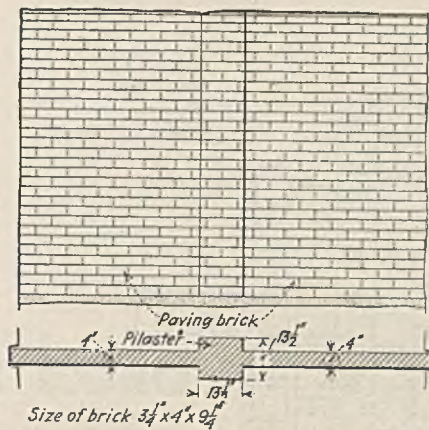 Paving brick
4" Pilaster 13½" 4"
13½"
Size of brick 3¼" x 4" x 9¼"